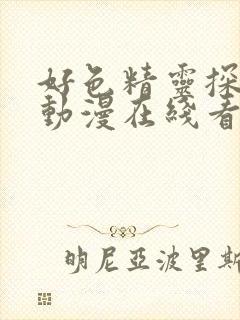 好色精靈探
動漫在綫看
明尼亞波里斯